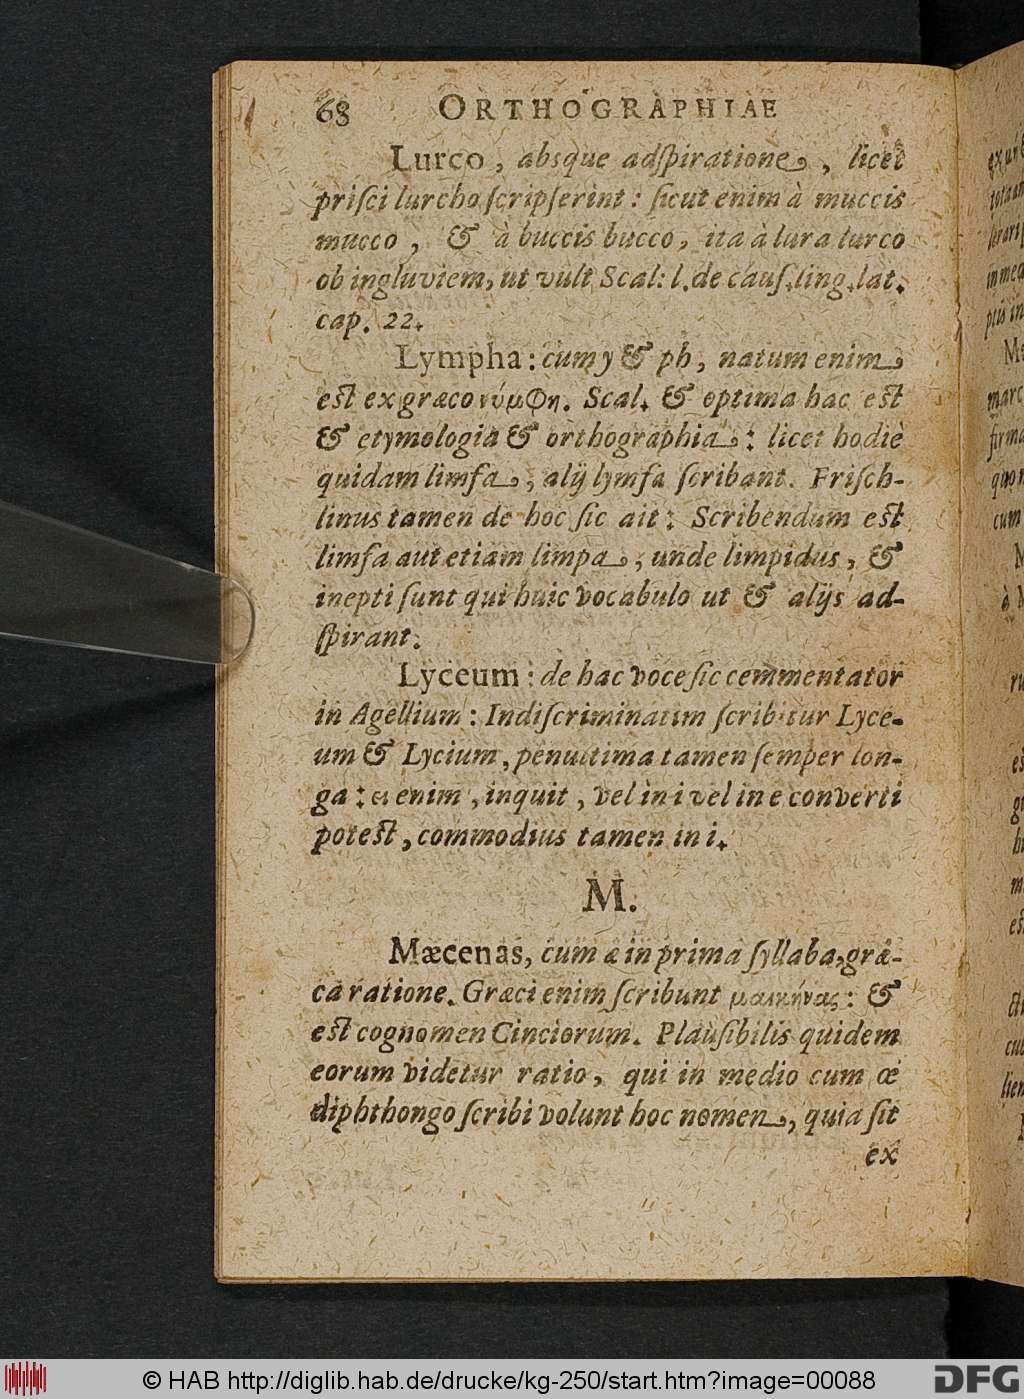 68 ORTHOGRAPHIAE
Lurco, absque adſpiratione, licet
priſci lurcho ſcripſerint: ſicut enim à muccis
mucco, & à buccis bucco, ita à lura lurco
ob ingluviem, ut vult Scal: l. de cauſ. ling. lat.
cap. 22.
Lympha: cum y & ph, natum enim
est ex græco νύμφη. Scal. & optima hac est
& etymologia & orthographia: licet hodiè
quidam limfa, alij lymfa ſcribant. Friſch-
linus tamen de hoc ſic ait: Scribendum est
limfa aut etiam limpa, unde limpidus, &
inepti ſunt qui huic vocabulo ut & alijs ad-
ſpirant.
Lyceum: de hac voce ſic cemmentator
in Agellium: Indiſcriminatim ſcribitur Lyce-
um & Lycium, penultima tamen ſemper lon-
ga: ει enim, inquit, vel in i vel in e converti
potest, commodius tamen in i.
M.
Mæcenas, cum æ in prima ſyllaba, græ-
ca ratione. Græci enim ſcribunt μαικήνας: &
est cognomen Cinciorum. Plauſibilis quidem
eorum videtur ratio, qui in medio cum œ
diphthongo ſcribi volunt hoc nomen, quia ſit
ex
© HAB http://diglib.hab.de/drucke/kg-250/start.htm?image=00088
DFG